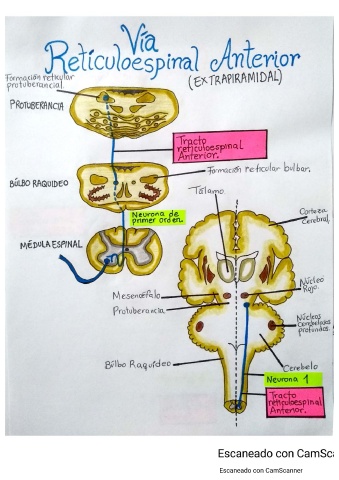 Vía
Retículoespinal Anterior
(EXTRAPIRAMIDAL)
Formación reticular
protuberancial.
PROTUBERANCIA
Tracto
retículoespinal
Anterior.
Formación reticular bulbar.
BÚLBO RAQUÍDEO
Tálamo
Neurona de
primer orden.
Corteza
Cerebral.
MÉDULA ESPINAL
Núcleo
Rojo.
Mesencéfalo
Protuberancia
Núcleos
Cerebelosos
profundos.
Búlbo Raquídeo
Cerebelo
Neurona 1
Tracto
retículoespinal
Anterior.
Escaneado con CamSca
Escaneado con CamScanner